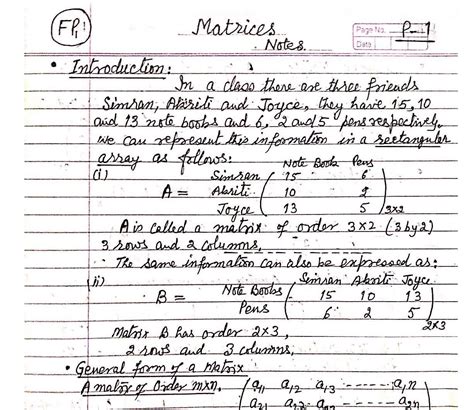 FP1
Matrices
Notes.
Page No. P-1
Date
• Introduction:
In a class there are three friends
Simran, Akriti and Joyce, they have 15, 10
and 13 note books and 6, 2 and 5 pens respectively,
we can represent this information in a rectangular
array as follows:
Note Books Pens
(i) Simran 15 6
A = Akriti 10 2
Joyce 13 5 3x2
A is called a matrix of order 3x2 (3 by 2)
3 rows and 2 columns,
The same information can also be expressed as:
ii) Simran Akriti Joyce
B = Note Books 15 10 13
Pens 6 2 5
2x3
Matrix B has order 2x3,
2 rows and 3 columns,
• General form of a Matrix
A matrix of order mxn. a11 a12 a13 ------ a1n
a21 a22 a2n